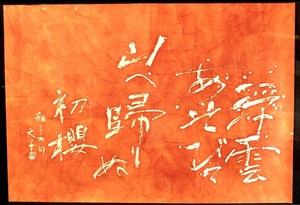 浮雲
あそび
山へ帰りぬ
初櫻